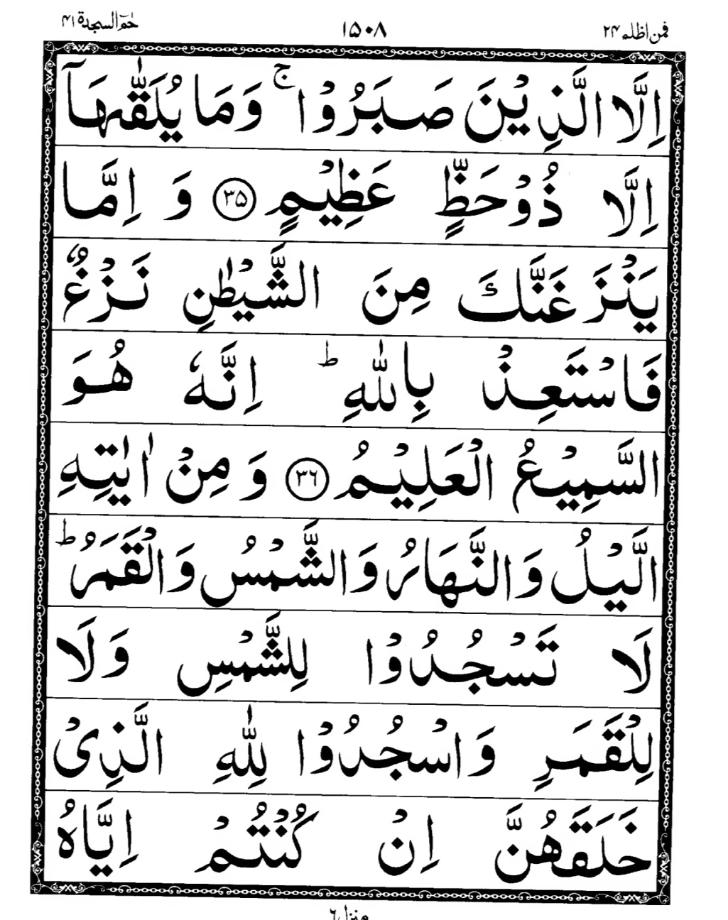 فمن اظلم ۲۴ ۱۵۰۸ حٰمٓ السجدة ۴۱
اِلَّا الَّذِيْنَ صَبَرُوْا ۚ وَمَا يُلَقّٰىهَاۤ
اِلَّا ذُوْحَظٍّ عَظِيْمٍ ﴿۳۵﴾ وَ اِمَّا
يَنْزَغَنَّكَ مِنَ الشَّيْطٰنِ نَزْغٌ
فَاسْتَعِذْ بِاللّٰهِ ؕ اِنَّهٗ هُوَ
السَّمِيْعُ الْعَلِيْمُ ﴿۳۶﴾ وَ مِنْ اٰيٰتِهِ
الَّيْلُ وَالنَّهَارُ وَالشَّمْسُ وَالْقَمَرُ ؕ
لَا تَسْجُدُوْا لِلشَّمْسِ وَلَا
لِلْقَمَرِ وَاسْجُدُوْا لِلّٰهِ الَّذِىْ
خَلَقَهُنَّ اِنْ كُنْتُمْ اِيَّاهُ
منزل ۶